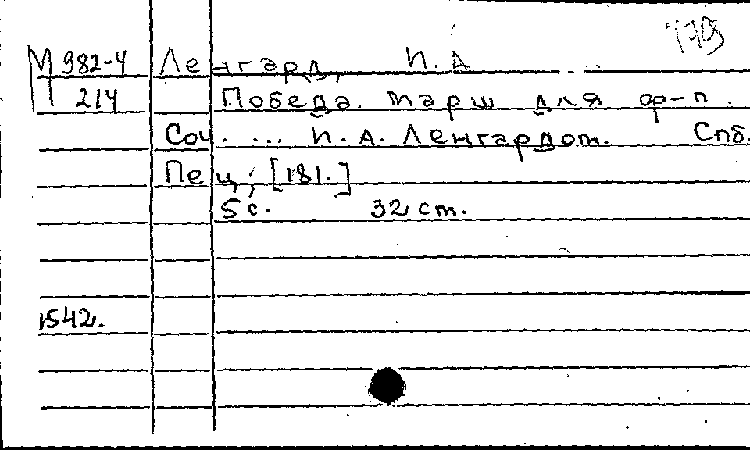 М 982-4 Ленгард, И. А
214 Победа. Марш для ф-п.
Соч. ... И. А. Ленгардом. Спб.
Пец, [181.]
5 с. 32 cm.
1542.